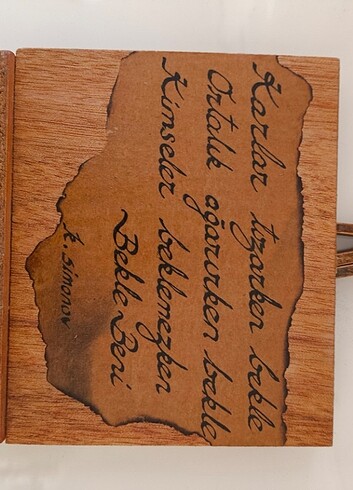 Karlar tozarken bekle
Ortalık ağarırken bekle
Kimseler beklemezken
Bekle Beni
K. Simonov